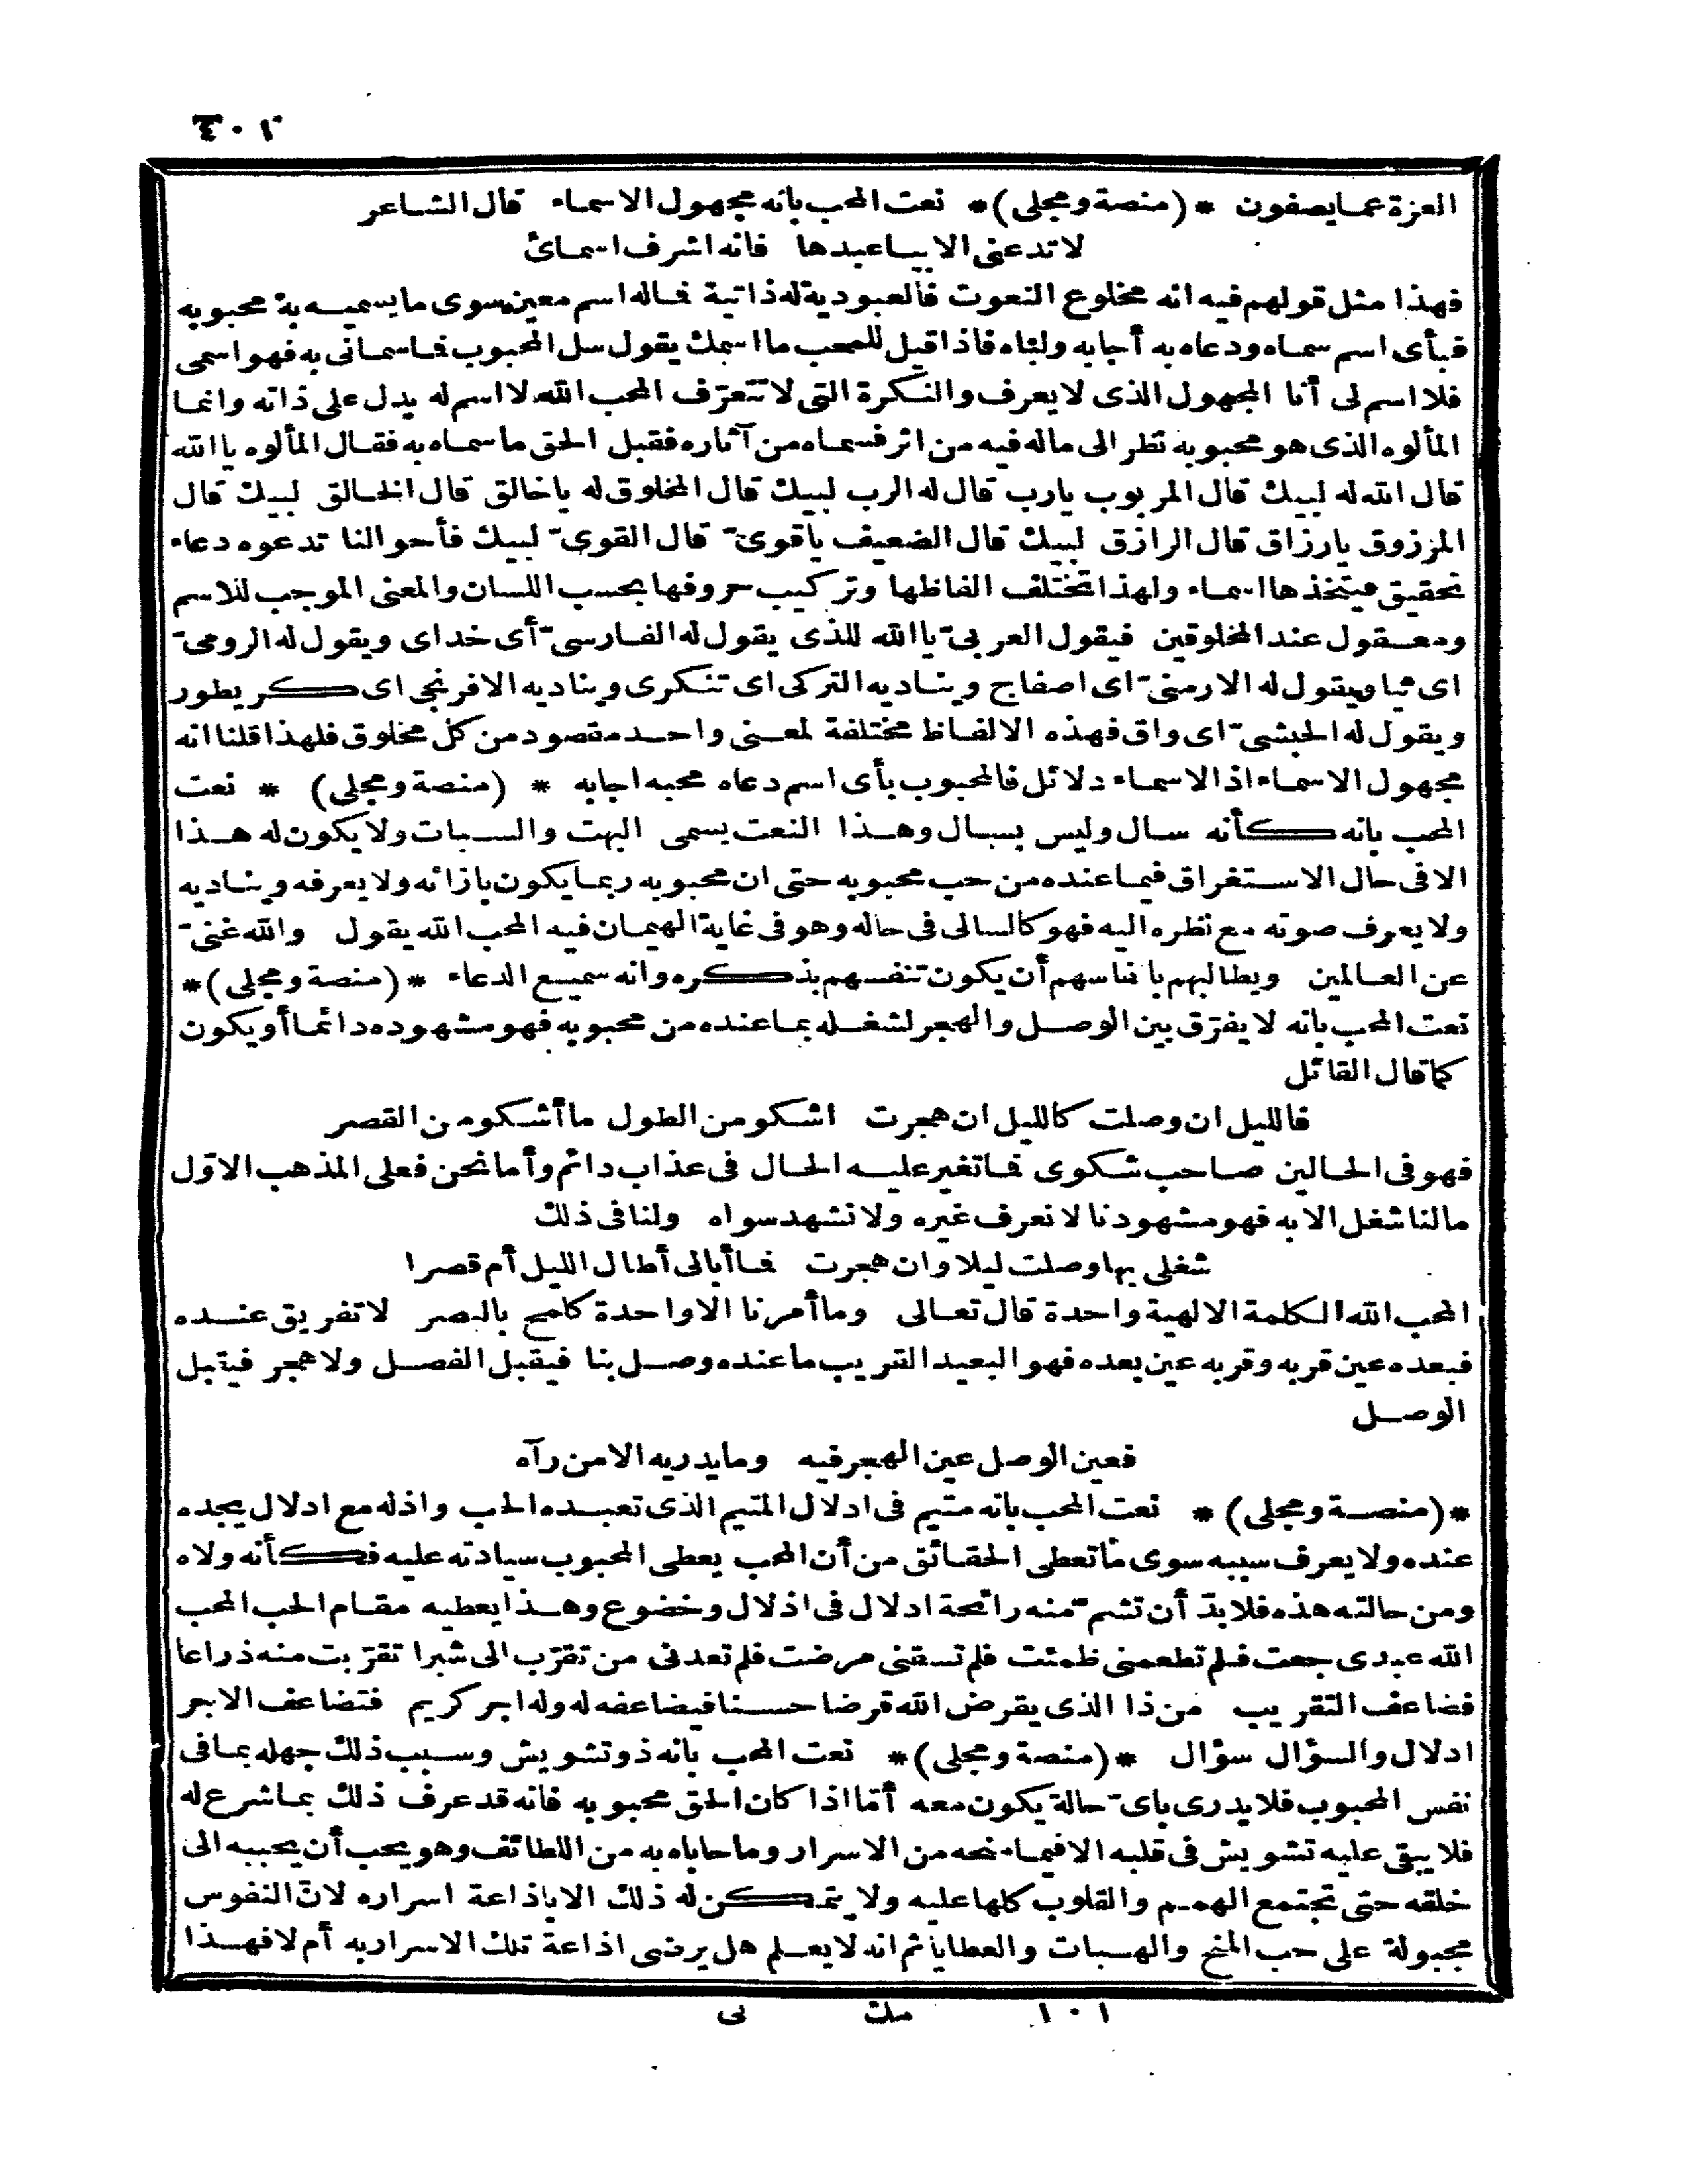 ٤٠١
العزة عما يصفون * (منصة ومجلى) * نعت المحب بانه مجهول الاسماء قال الشاعر
لا تدعنى الا بيا عبدها فانه اشرف اسمائ
فهذا مثل قولهم فيه انه مخلوع النعوت فالعبودية له ذاتية فماله اسم معين سوى ما يسميه به محبوبه
فبأى اسم سماه ودعاه به أجابه ولباه فاذا قيل للمحب ما اسمك يقول سل المحبوب فما سمانى به فهو اسمى
فلا اسم لى أنا المجهول الذى لا يعرف والنكرة التى لا تتعرّف المحب الله لا اسم له يدل على ذاته وانما
المألوه الذى هو محبوبه نظر الى ماله فيه من اثر فسماه من آثاره فقبل الحق ما سماه به فقال المألوه يا الله
قال الله له لبيك قال المربوب يا رب قال له الرب لبيك قال المخلوق له يا خالق قال الخالق لبيك قال
المرزوق يا رزاق قال الرازق لبيك قال الضعيف يا قوىّ قال القوىّ لبيك فأحوالنا تدعوه دعاء
تحقيق فيتخذها اسماء ولهذا تختلف الفاظها وتركيب حروفها بحسب اللسان والمعنى الموجب للاسم
ومعقول عند المخلوقين فيقول العربىّ يا الله للذى يقول له الفارسىّ أى خداى ويقول له الرومىّ
اى ثيا ويقول له الارمنىّ اى اصفاج ويناديه التركى اى تنكرى ويناديه الافرنجى اى كريطور
ويقول له الحبشىّ اى واق فهذه الالفاظ مختلفة لمعنى واحد مقصود من كل مخلوق فلهذا قلنا انه
مجهول الاسماء اذ الاسماء دلائل فالمحبوب بأى اسم دعاه محبه اجابه * (منصة ومجلى) * نعت
المحب بانه كأنه سال وليس بسال وهذا النعت يسمى البهت والسبات ولا يكون له هذا
الا فى حال الاستغراق فيما عنده من حب محبوبه حتى ان محبوبه ربما يكون بازائه ولا يعرفه ويناديه
ولا يعرف صوته مع نظره اليه فهو كالسالى فى حاله وهو فى غاية الهيمان فيه المحب الله يقول والله غنىّ
عن العالمين ويطالبهم بانفاسهم أن يكون تنفسهم بذكره وانه سميع الدعاء * (منصة ومجلى) *
نعت المحب بانه لا يفرّق بين الوصل والهجر لشغله بما عنده من محبوبه فهو مشهوده دائما أو يكون
كما قال القائل
فالليل ان وصلت كالليل ان هجرت اشكو من الطول ما أشكو من القصر
فهو فى الحالين صاحب شكوى فما تغير عليه الحال فى عذاب دائم وأما نحن فعلى المذهب الاوّل
مالنا شغل الا به فهو مشهودنا لا نعرف غيره ولا نشهد سواه ولنا فى ذلك
شغلى بها وصلت ليلا وان هجرت فما أبالى أطال الليل أم قصرا
المحب الله الكلمة الالهية واحدة قال تعالى وما أمرنا الا واحدة كلمح بالبصر لا تفريق عنده
فبعده عين قربه وقربه عين بعده فهو البعيد القريب ما عنده وصل بنا فيقبل الفصل ولا هجر فيقبل
الوصل
فعين الوصل عين الهجر فيه وما يدريه الا من رآه
* (منصة ومجلى) * نعت المحب بانه متيم فى ادلال المتيم الذى تعبده الحب واذله مع ادلال يجده
عنده ولا يعرف سببه سوى ما تعطى الحقائق من أن المحب يعطى المحبوب سيادته عليه فكأنه ولاه
ومن حالته هذه فلا بدّ أن تشمّ منه رائحة ادلال فى اذلال وخضوع وهذا يعطيه مقام الحب المحب
الله عبدى جعت فلم تطعمنى ظمئت فلم تسقنى مرضت فلم تعدنى من تقرّب الى شبرا تقرّبت منه ذراعا
فضاعف التقريب من ذا الذى يقرض الله قرضا حسنا فيضاعفه له وله اجر كريم فتضاعف الاجر
ادلال والسؤال سؤال * (منصة ومجلى) * نعت المحب بانه ذو تشويش وسبب ذلك جهله بما فى
نفس المحبوب فلا يدرى باىّ حالة يكون معه أمّا اذا كان الحق محبوبه فانه قد عرف ذلك بما شرع له
فلا يبقى عليه تشويش فى قلبه الا فيما منحه من الاسرار وما حاباه به من اللطائف وهو يحب أن يحببه الى
خلقه حتى تجتمع الهمم والقلوب كلها عليه ولا يتمكن له ذلك الا باذاعة اسراره لانّ النفوس
مجبولة على حب المنح والهبات والعطايا ثم انه لا يعلم هل يرضى اذاعة تلك الاسرار به أم لا فهذا
١٠١ مك نى